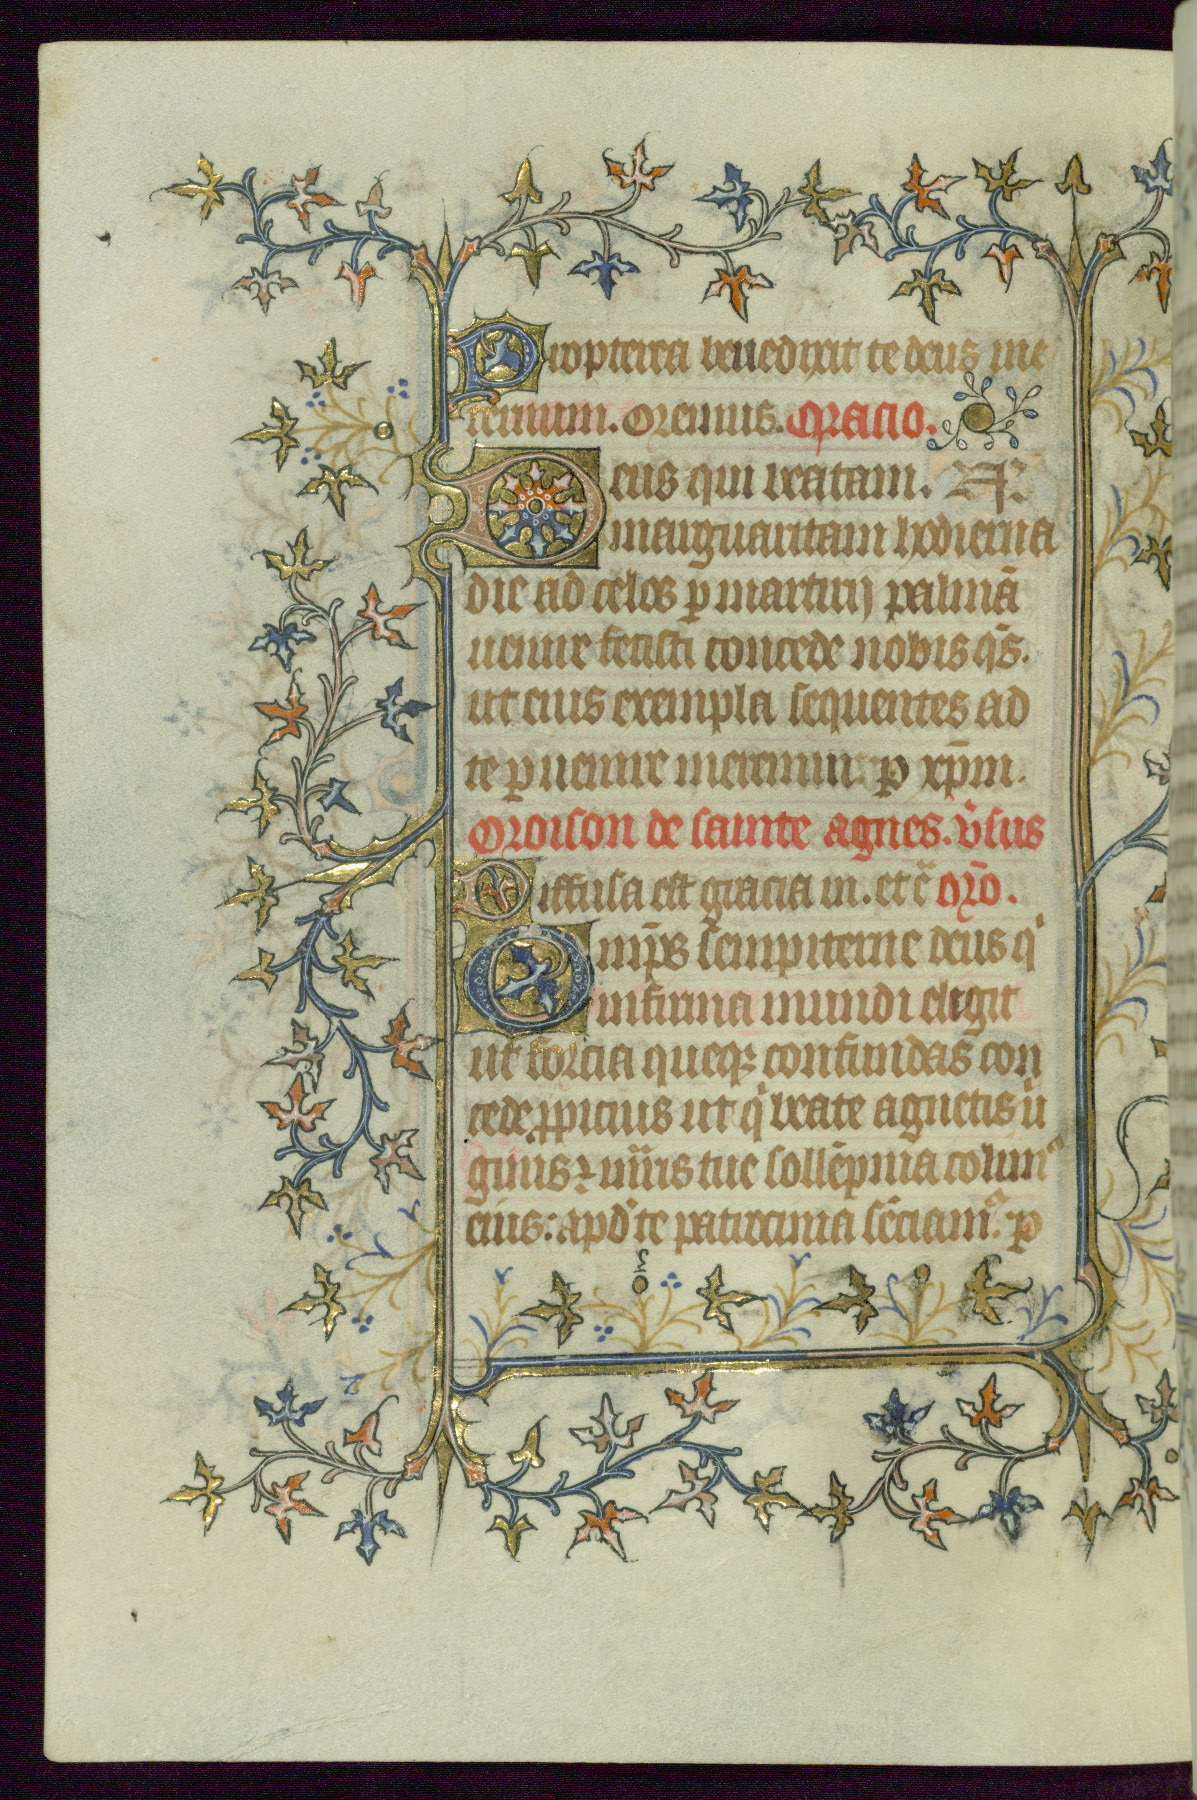 Propterea benedixit te deus in e
ternum. Oremus. Oracio.
Deus qui beatam.
marguaritam hodierna
die ad celos p martirij palmā
uenire fecisti concede nobis qs̄.
ut eius exempla sequentes ad
te puenire mereamur. p xp̄m.
Oroison de sainte agnes. v̄sus
Diffusa est gracia in. et c̄ orō.
Omp̄s sempiterne deus qͥ
infirma mundi elegit
ut forcia queqȝ confundas con
cede ppicius ut qͥ beate agnetis uͥ
ginis ⁊ mr̄is tue sollēpnia colimꝰ
eius: apd te patrocinia sēciamꝰ. p